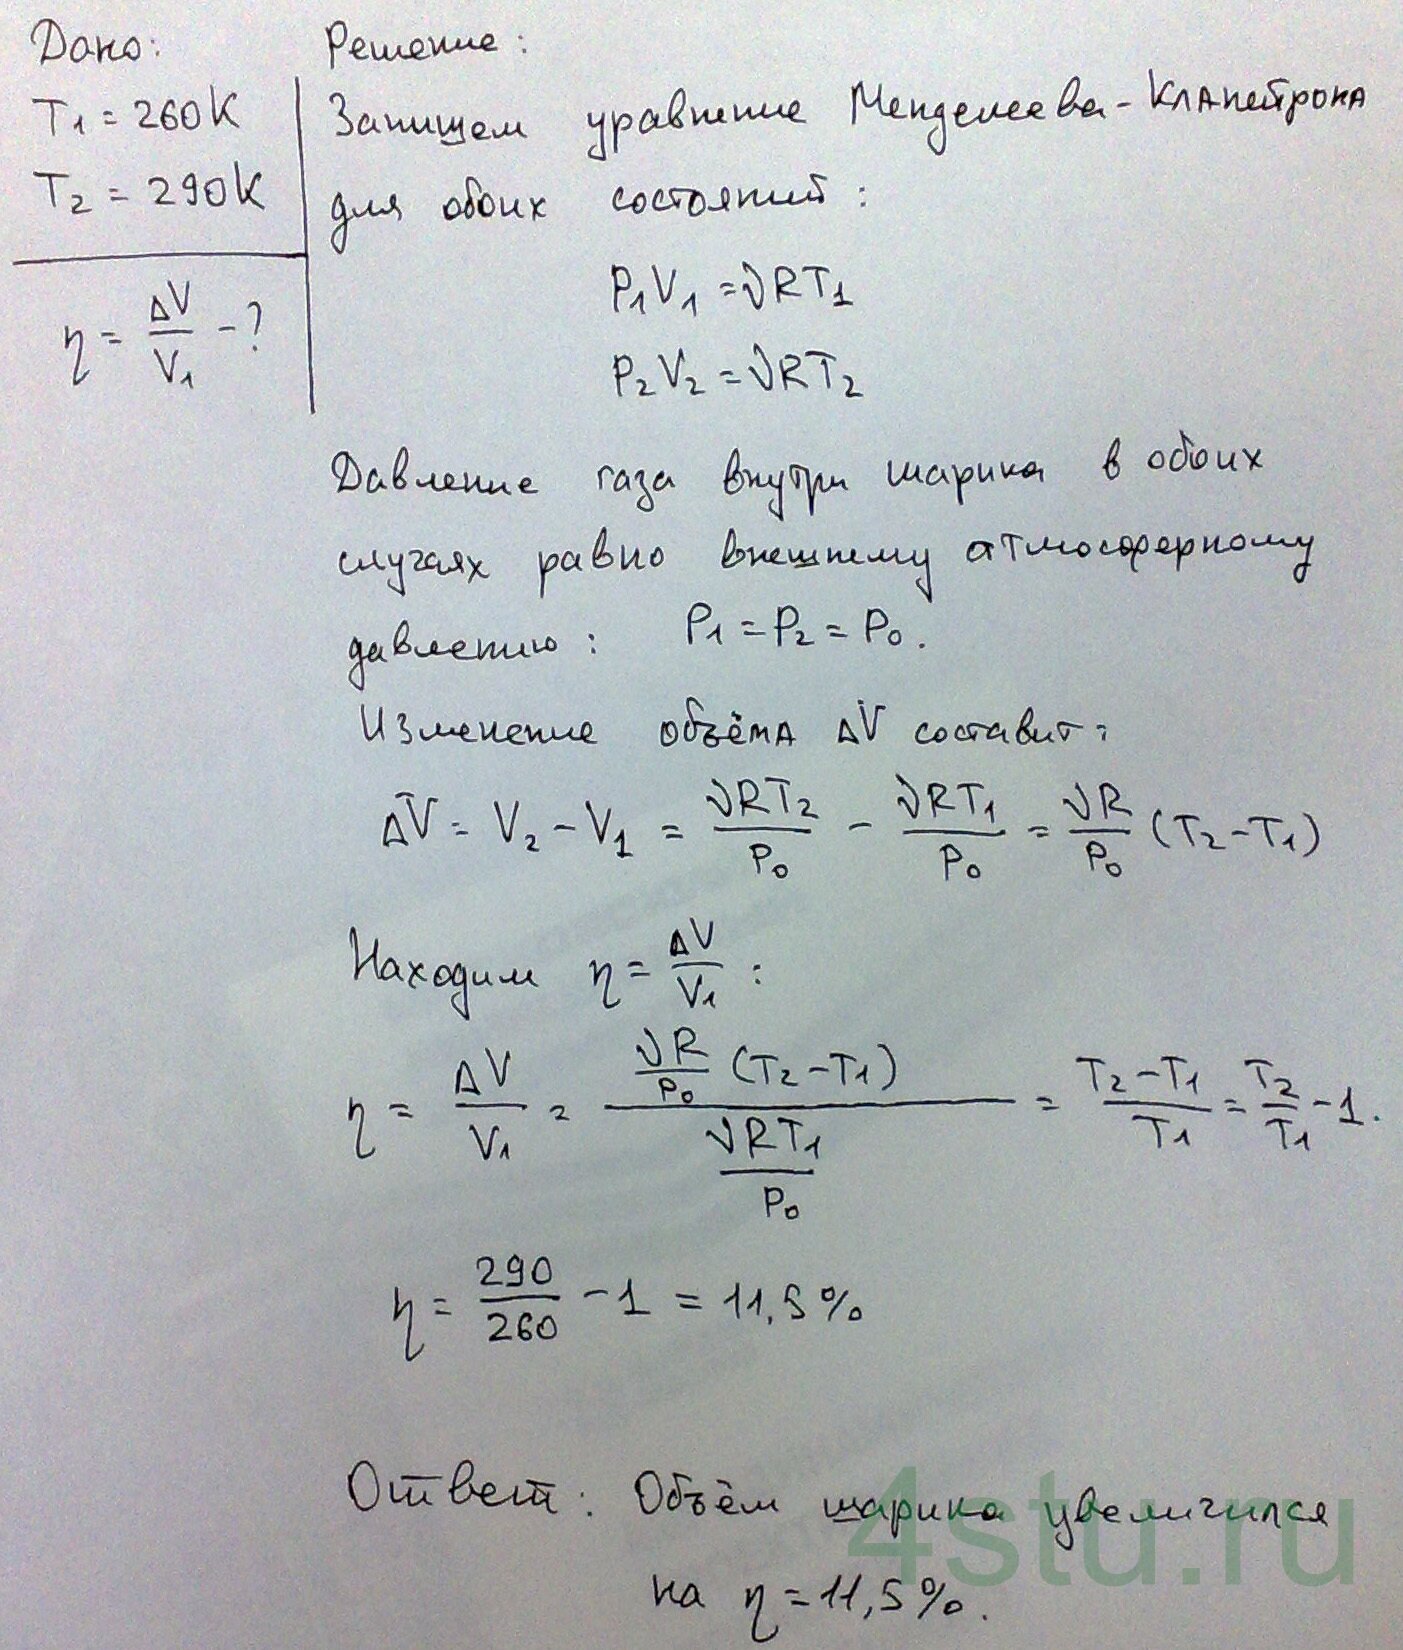 Дано:
T₁ = 260K
T₂ = 290K
η = ΔV/V₁ - ?
Решение:
Запишем уравнение Менделеева-Клапейрона
для обоих состояний:
P₁V₁ = νRT₁
P₂V₂ = νRT₂
Давление газа внутри шарика в обоих
случаях равно внешнему атмосферному
давлению: P₁ = P₂ = P₀.
Изменение объёма ΔV составит:
ΔV = V₂ - V₁ = νRT₂/P₀ - νRT₁/P₀ = νR/P₀ (T₂ - T₁)
Находим η = ΔV/V₁ :
η = ΔV/V₁ = (νR/P₀ (T₂ - T₁))/(νRT₁/P₀) = (T₂ - T₁)/T₁ = T₂/T₁ - 1.
η = 290/260 - 1 = 11,5%
Ответ: Объём шарика увеличился
на η = 11,5%.
4stu.ru